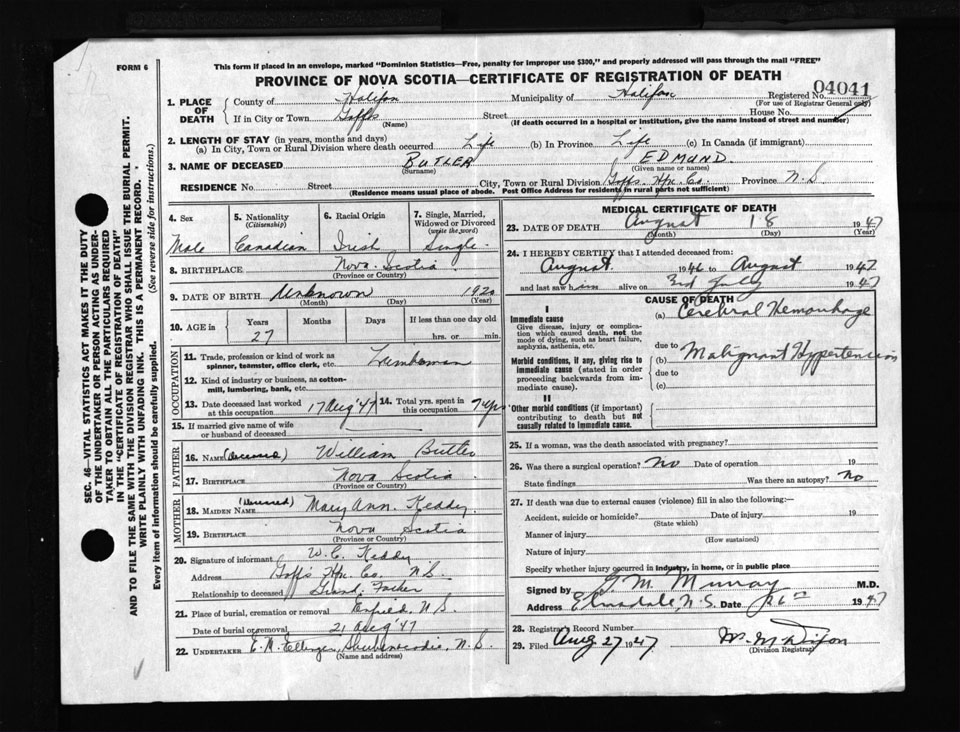 This form if placed in an envelope, marked "Dominion Statistics—Free, penalty for improper use $300," and properly addressed will pass through the mail "FREE"
FORM 6
PROVINCE OF NOVA SCOTIA—CERTIFICATE OF REGISTRATION OF DEATH
Registered No. 04041
(For use of Registrar General only)
1. PLACE OF DEATH
County of Halifax Municipality of Halifax
If in City or Town Goffs Street House No.
(Name) (If death occurred in a hospital or institution, give the name instead of street and number)
2. LENGTH OF STAY (in years, months and days)
(a) In City, Town or Rural Division where death occurred Life (b) In Province Life (c) In Canada (if immigrant)
3. NAME OF DECEASED BUTLER EDMUND.
(Surname) (Given name or names)
RESIDENCE No. Street City, Town or Rural Division Goffs Hfx. Co. Province N.S
(Residence means usual place of abode. Post Office Address for residents in rural parts not sufficient)
4. Sex
Male
5. Nationality
(Citizenship)
Canadian
6. Racial Origin
Irish
7. Single, Married, Widowed or Divorced
(write the word)
Single
8. BIRTHPLACE Nova Scotia
(Province or Country)
9. DATE OF BIRTH Unknown 1920
(Month) (Day) (Year)
10. AGE in
Years Months Days If less than one day old
27 hrs. or min.
OCCUPATION
11. Trade, profession or kind of work as spinner, teamster, office clerk, etc. Lumberman
12. Kind of industry or business, as cotton-mill, lumbering, bank, etc.
13. Date deceased last worked at this occupation 17 Aug '47
14. Total yrs. spent in this occupation 7 yrs
15. If married give name of wife or husband of deceased
FATHER
16. Name (deceased) William Butler
17. Birthplace Nova Scotia
(Province or Country)
MOTHER
18. Maiden Name (deceased) Mary Ann. Keddy
19. Birthplace Nova Scotia
(Province or Country)
20. Signature of informant W. C. Keddy
Address Goffs Hfx. Co. N.S.
Relationship to deceased Grand Father
21. Place of burial, cremation or removal Enfield, N.S.
Date of burial or removal 21 Aug '47
22. UNDERTAKER E. N. Shubenacadie, N.S.
(Name and address)
MEDICAL CERTIFICATE OF DEATH
23. DATE OF DEATH August 18 1947
(Month) (Day) (Year)
24. I HEREBY CERTIFY that I attended deceased from:
August. 1946 to August 1947
and last saw him alive on 3rd July 1947
CAUSE OF DEATH
I
Immediate cause
Give disease, injury or complication which caused death, not the mode of dying, such as heart failure, asphyxia, asthenia, etc.
(a) Cerebral Hemorrhage
due to
Morbid conditions, if any, giving rise to immediate cause (stated in order proceeding backwards from immediate cause).
(b) Malignant Hypertension
due to
(c)
II
Other morbid conditions (if important) contributing to death but not causally related to immediate cause.
25. If a woman, was the death associated with pregnancy?
26. Was there a surgical operation? No Date of operation 19
State findings Was there an autopsy? No
27. If death was due to external causes (violence) fill in also the following:—
Accident, suicide or homicide? Date of injury 19
(State which)
Manner of injury
(How sustained)
Nature of injury
Specify whether injury occurred in industry, in home, or in public place
Signed by J. M. Murray M.D.
Address Elmsdale, N.S. Date 26 1947
28. Registrar's Record Number
29. Filed Aug 27 1947
(Division Registrar)
SEC. 46—VITAL STATISTICS ACT MAKES IT THE DUTY
OF THE UNDERTAKER OR PERSON ACTING AS UNDER-
TAKER TO OBTAIN ALL THE PARTICULARS REQUIRED
IN THE "CERTIFICATE OF REGISTRATION OF DEATH"
AND TO FILE THE SAME WITH THE DIVISION REGISTRAR WHO SHALL ISSUE THE BURIAL PERMIT.
WRITE PLAINLY WITH UNFADING INK. THIS IS A PERMANENT RECORD.
Every item of information should be carefully supplied. (See reverse side for instructions.)